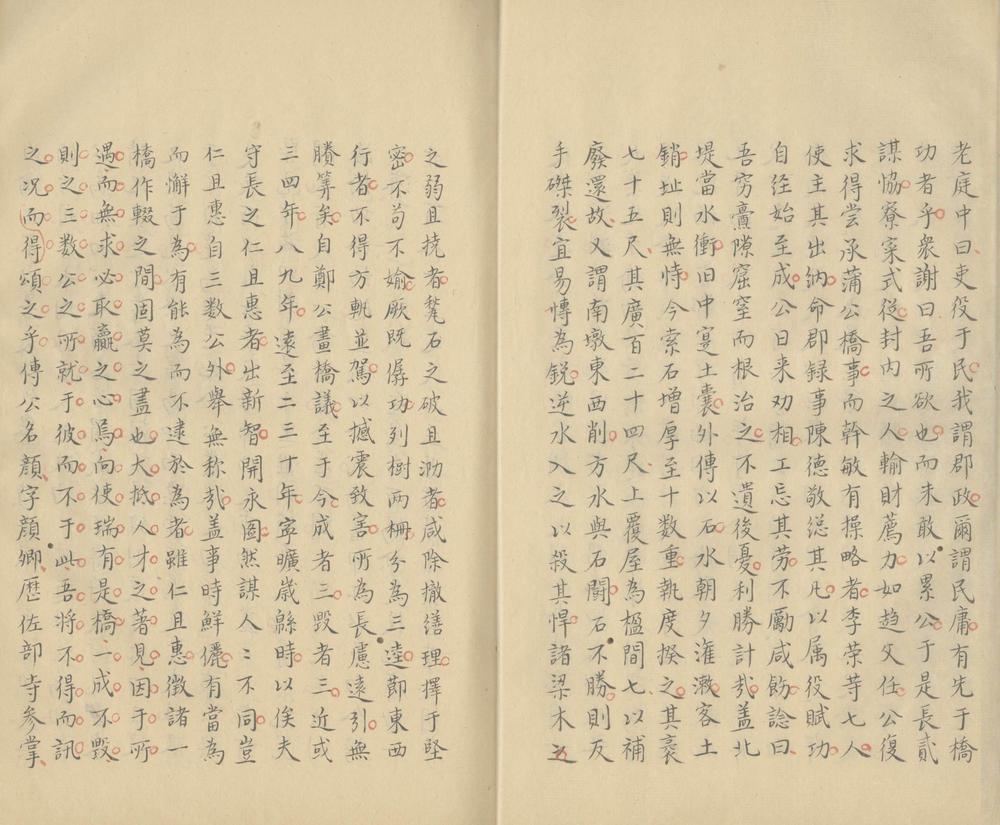 老庭中曰吏役于民我謂郡政爾謂民庸有先于橋
功者乎衆謝曰吾所欲也而未敢以累公于是長貳
謀恊寮寀式從封内之人輸財薦力如趋父任公復
求得尝承蒲公橋事而幹敏有操略者李荣䓁七人
使主其出納命郡録事陳德敬縂其凡以属役賦功
自经始至成公日来劝相工忘其劳不勵咸飭諗曰
吾穷橐隙窟窒而根治之不遺後憂利勝計㦲盖北
堤當水衝旧中寔土囊外傳以石水朝夕漼潄客土
銷址則無恃今索石增厚至十数重執度揆之其袤
七十五尺其廣百二十四尺上覆屋為楹間七以補
廢還故又謂南墩東西削方水與石鬭石不勝則反
手磔裂宜易慱為鋭逆水入之以殺其悍諸梁木之
之弱且撓者甃石之破且泐者咸除撤缮理擇于堅
密不苟不媮厥既僝功列樹两栅分為三逵節東西
行者不得方軌並駕以撼震致害所為長慮遠引無
賸筭矣自鄭公畫橋議至于今成者三毀者三近或
三四年八九年遠至二三十年寧曠歲緜時以俟夫
守長之仁且惠者出新智開永圖然謀人〻不同豈
仁且惠自三数公外舉無称㦲盖事時鮮儷有當為
而懈于為有能為而不逮於為者雖仁且惠徴諸一
橋作輟之間固莫之盡也大抵人才之著見因于所
遇而無求必取贏之心焉向使瑞有是橋一成不毀
則之三数公之所就于彼而不于此吾将不得而訊
之况而得頌之乎傳公名顔字顔卿歷佐部寺参掌